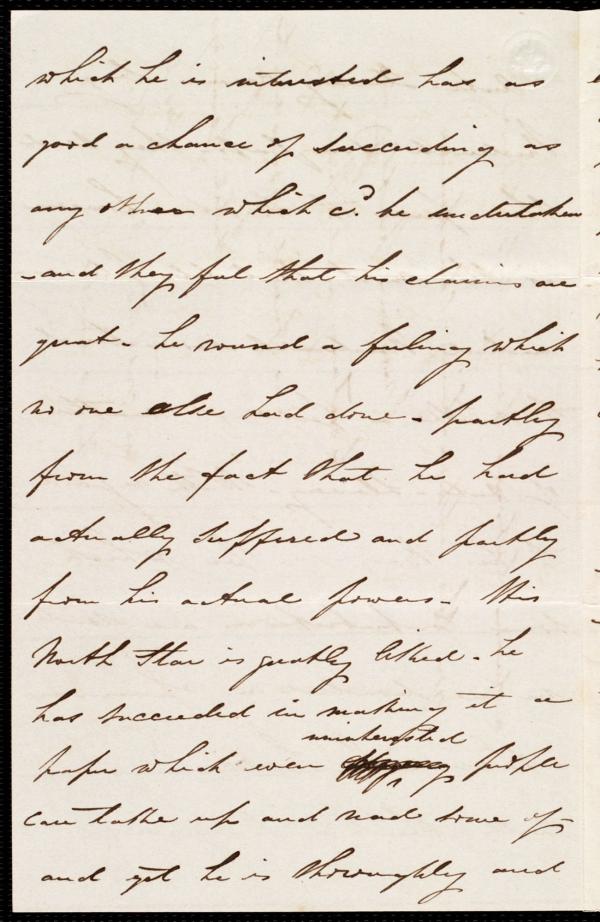 which he is interested has as
good a chance of succeeding as
any other which cd. be undertaken
- and they feel that his claims are
great - he roused a feeling which
no one else had done - partly
from the fact that he had
actually suffered and partly
from his actual powers - His
North Star is greatly liked - he
has succeeded in making it a
uninterested
paper which even people
can take up and read some of -
and yet he is thoroughly and